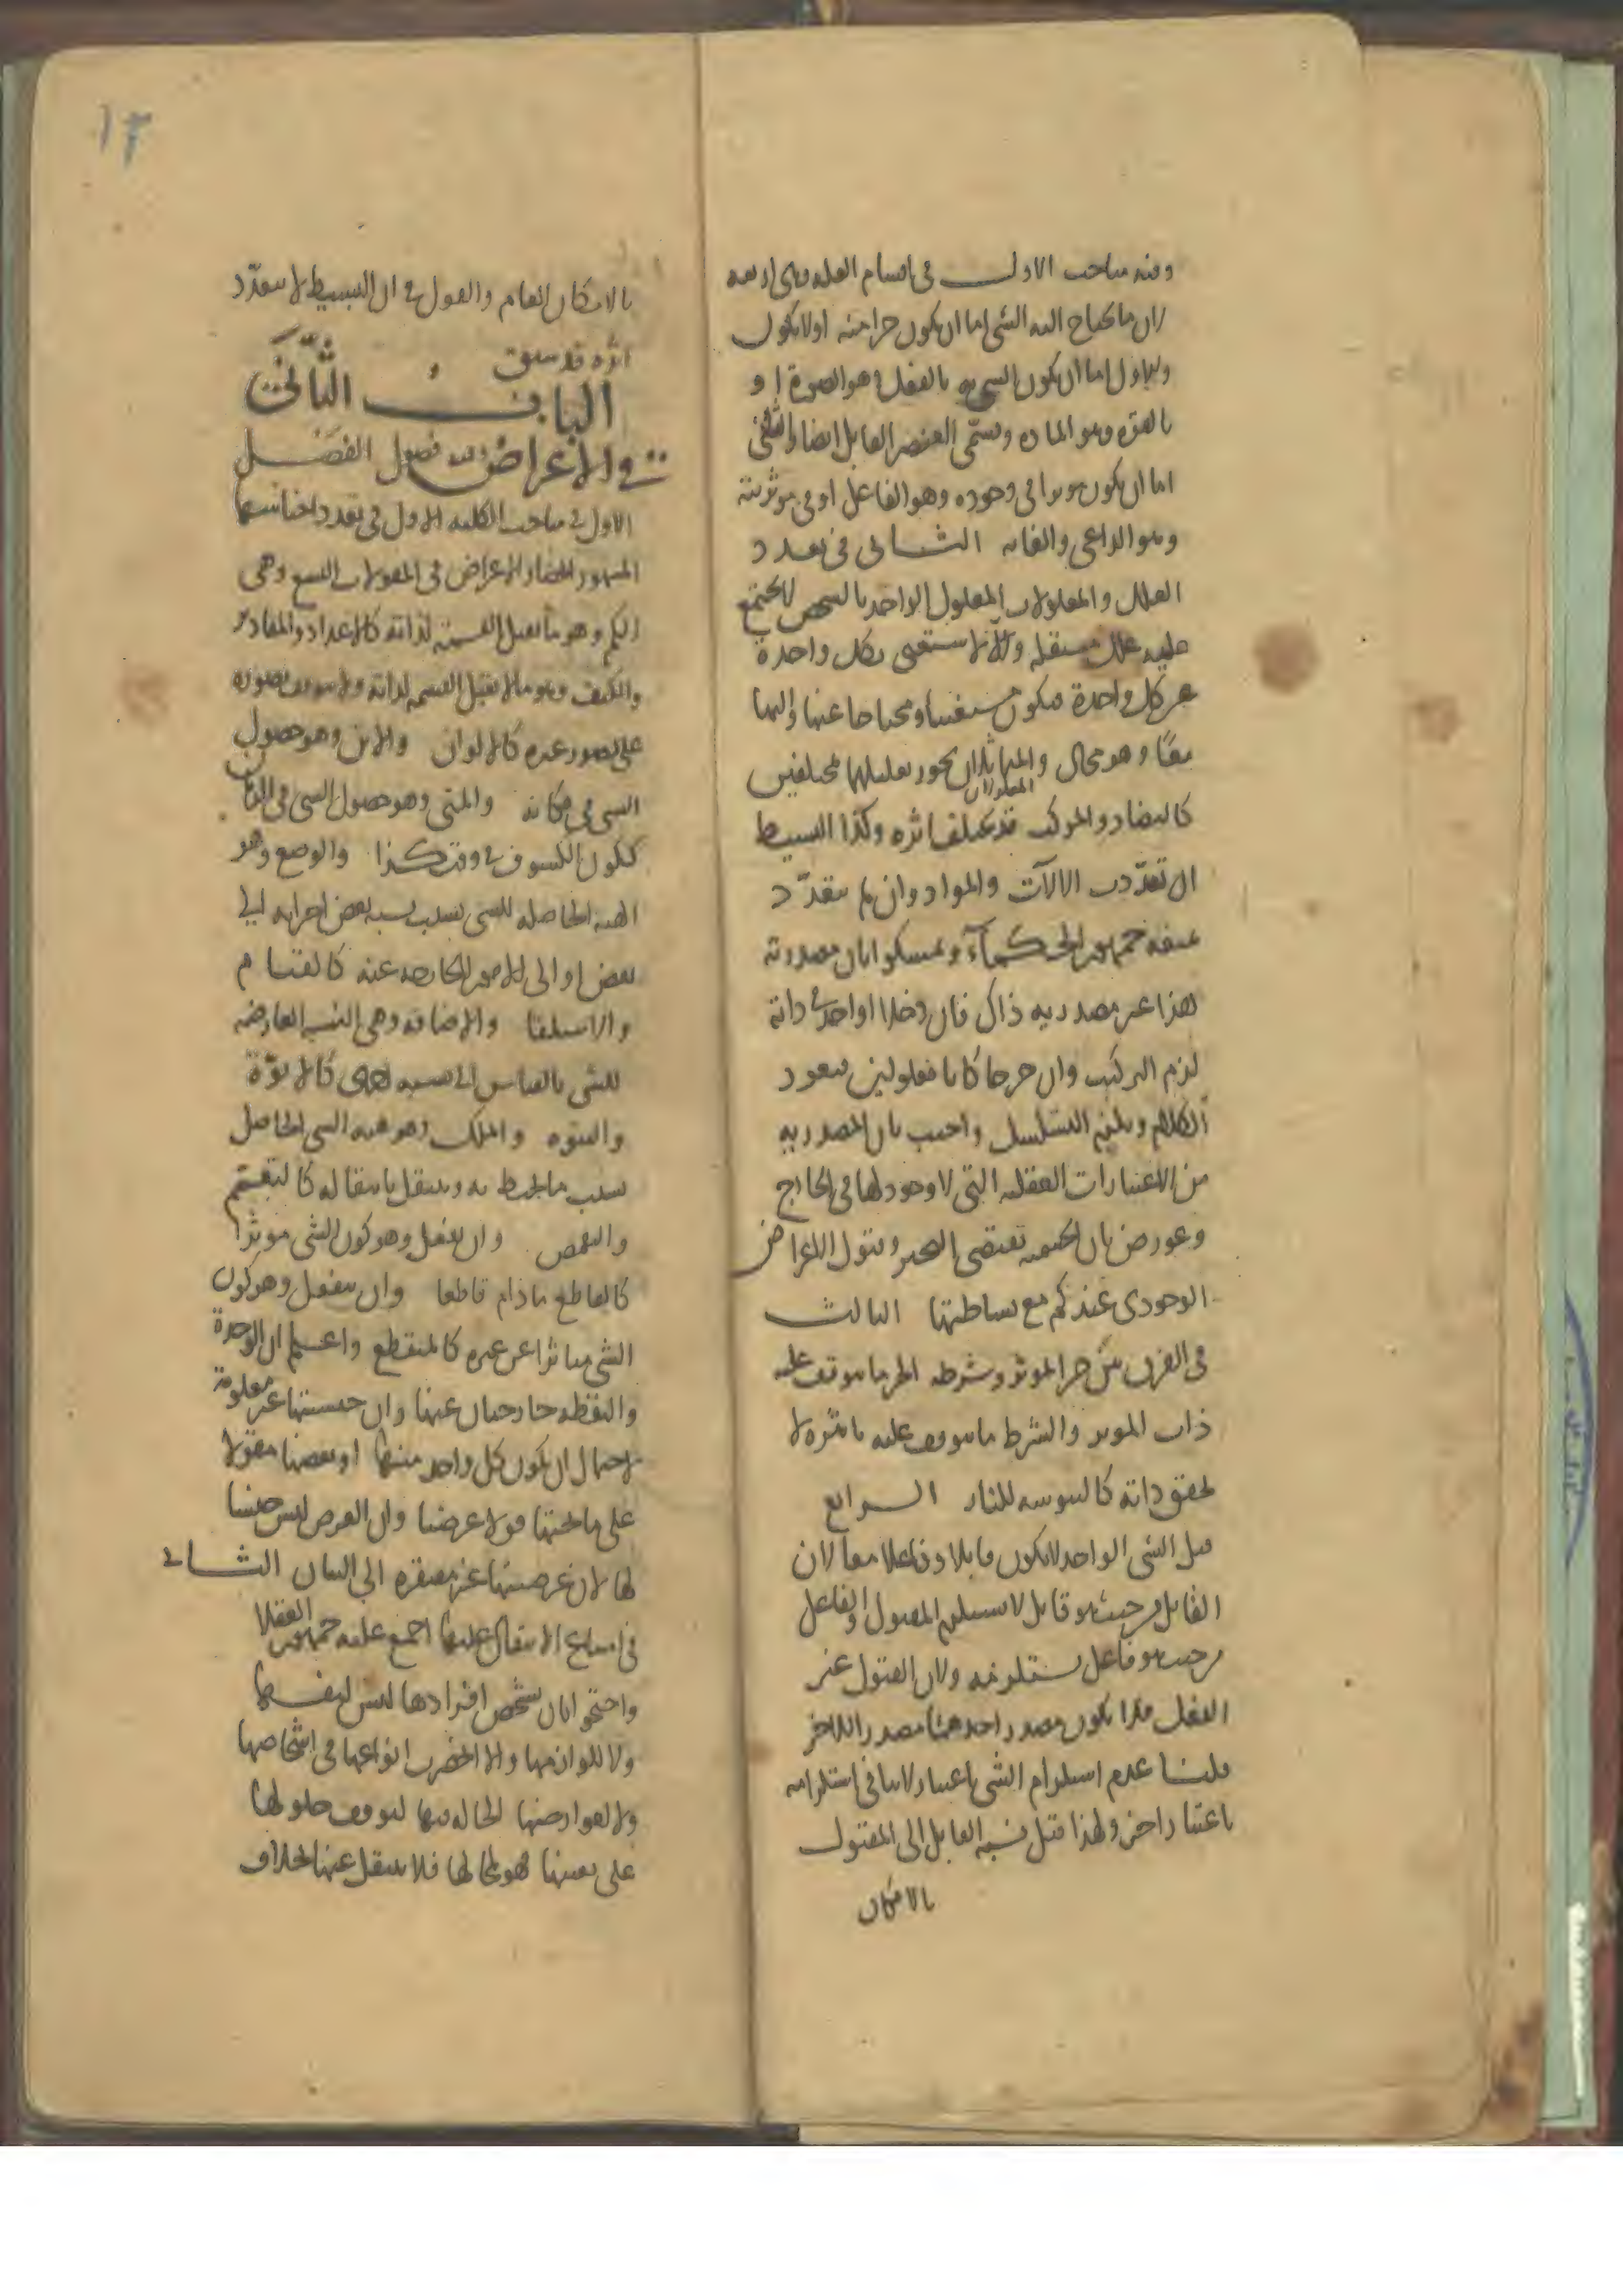 وفيه مباحث الاول في اقسام العلة وهي اربعة
لان ما يحتاج اليه الشي اما ان يكون جزا منه اولا يكون
والاول اما ان يكون الشي به بالفعل وهو الصورة او
بالقوة وهو المادة ويسمى العنصر القابل ايضا والثاني
اما ان يكون موثرا في وجوده وهو الفاعل او في موثريته
وهو الداعي والغاية الثاني في تعدد
العلل والمعلولات المعلول الواحد بالشخص لا يجتمع
عليه علل مستقلة والا لاستغنى بكل واحدة
عن كل واحدة فيكون مستغنيا ومحتاجا عنها واليها
معًا وهو محال والمتماثلان يجوز تعليلهما بمختلفين
المعلولان
كالتضاد والمركب قد يختلف اثره وكذا البسيط
ان تعدّدت الالآت والمواد وان لم يتعدّد
منعه جمهور الحكمآء وتمسكوا بان مصدرية
هذا غير مصدرية ذاك فان دخلا او احدهما في ذاته
لزم التركيب وان خرجا كانا معلولين فيعود
الكلام ويلزم التسلسل واجيب بان المصدرية
من الاعتبارات العقلية التي لا وجود لها في الخارج
وعورض بان الجسمية تقتضي التحيز وقبول الاعراض
الوجودي عندكم مع بساطتها الثالث
في الفرق بين جز الموثر وشرطه الجز ما يتوقف عليه
ذات الموثر والشرط ما يتوقف عليه تاثيره لا
تحقق ذاته كاليبوسة للنار الرابع
قيل الشي الواحد لا يكون قابلا وفاعلا معا لان
القابل من حيث هو قابل لا يستلزم المقبول والفاعل
من حيث هو فاعل يستلزمه ولان القبول غير
الفعل فلا يكون مصدر احدهما مصدر الاخر
قلنا عدم استلزام الشي باعتبار لا ينافي استلزامه
باعتبار اخر ولهذا قيل نسبة القابل الى المقبول
بالامكان
١٣
بالامكان العام والقول في ان البسيط لا يتعدّد
اثره قد سبق
الباب الثاني
في الاعراض وفيه فصول الفصل
الاول في مباحث الكلية الاول في تعدد اجناسها
المشهور انحصار الاعراض في المقولات التسع وهي
الكم وهو ما يقبل القسمة لذاته كالاعداد والمقادير
والكيف وهو ما لا يقبل القسمة لذاته ولا يتوقف تصوره
على تصور غيره كالالوان والاين وهو حصول
الشي في مكانه والمتى وهو حصول الشي في الزمان
ككون الكسوف في وقت كذا والوضع وهو
الهيئة الحاصلة للشي بسبب نسبة بعض اجزايه الى
بعض او الى الامور الخارجة عنه كالقيام
والاستلقا والاضافة وهي النسبة العارضة
للشي بالقياس الى نسبة اخرى كالابوّة
والبنوة والملك وهو هيئة الشي الحاصل
بسبب ما يحيط به وينتقل بانتقاله كالتعمّم
والتقمص وان يفعل وهو كون الشي موثرا
كالقاطع مادام قاطعا وان ينفعل وهو كون
الشي متاثرا عن غيره كالمنقطع واعلم ان الوحدة
والنقطة خارجتان عنها وان جنسيتها غير معلومة
لاحتمال ان يكون كل واحد منها او بعضها مقولا
على ما تحتها قولا عرضيا وان العرض ليس جنسا
لها لان عرضيتها غير مفتقرة الى البيان الثاني
في امتناع الانتقال عليها اجمع عليه جمهور العقلا
واحتجوا بان تشخص افرادها ليس لنفسها
ولا للوازمها والا انحصرت انواعها في اشخاصها
ولا لعوارضها الحالة فيها لتوقف حلولها
على تعينها فهو لمحالها فلا ينتقل عنها بخلاف